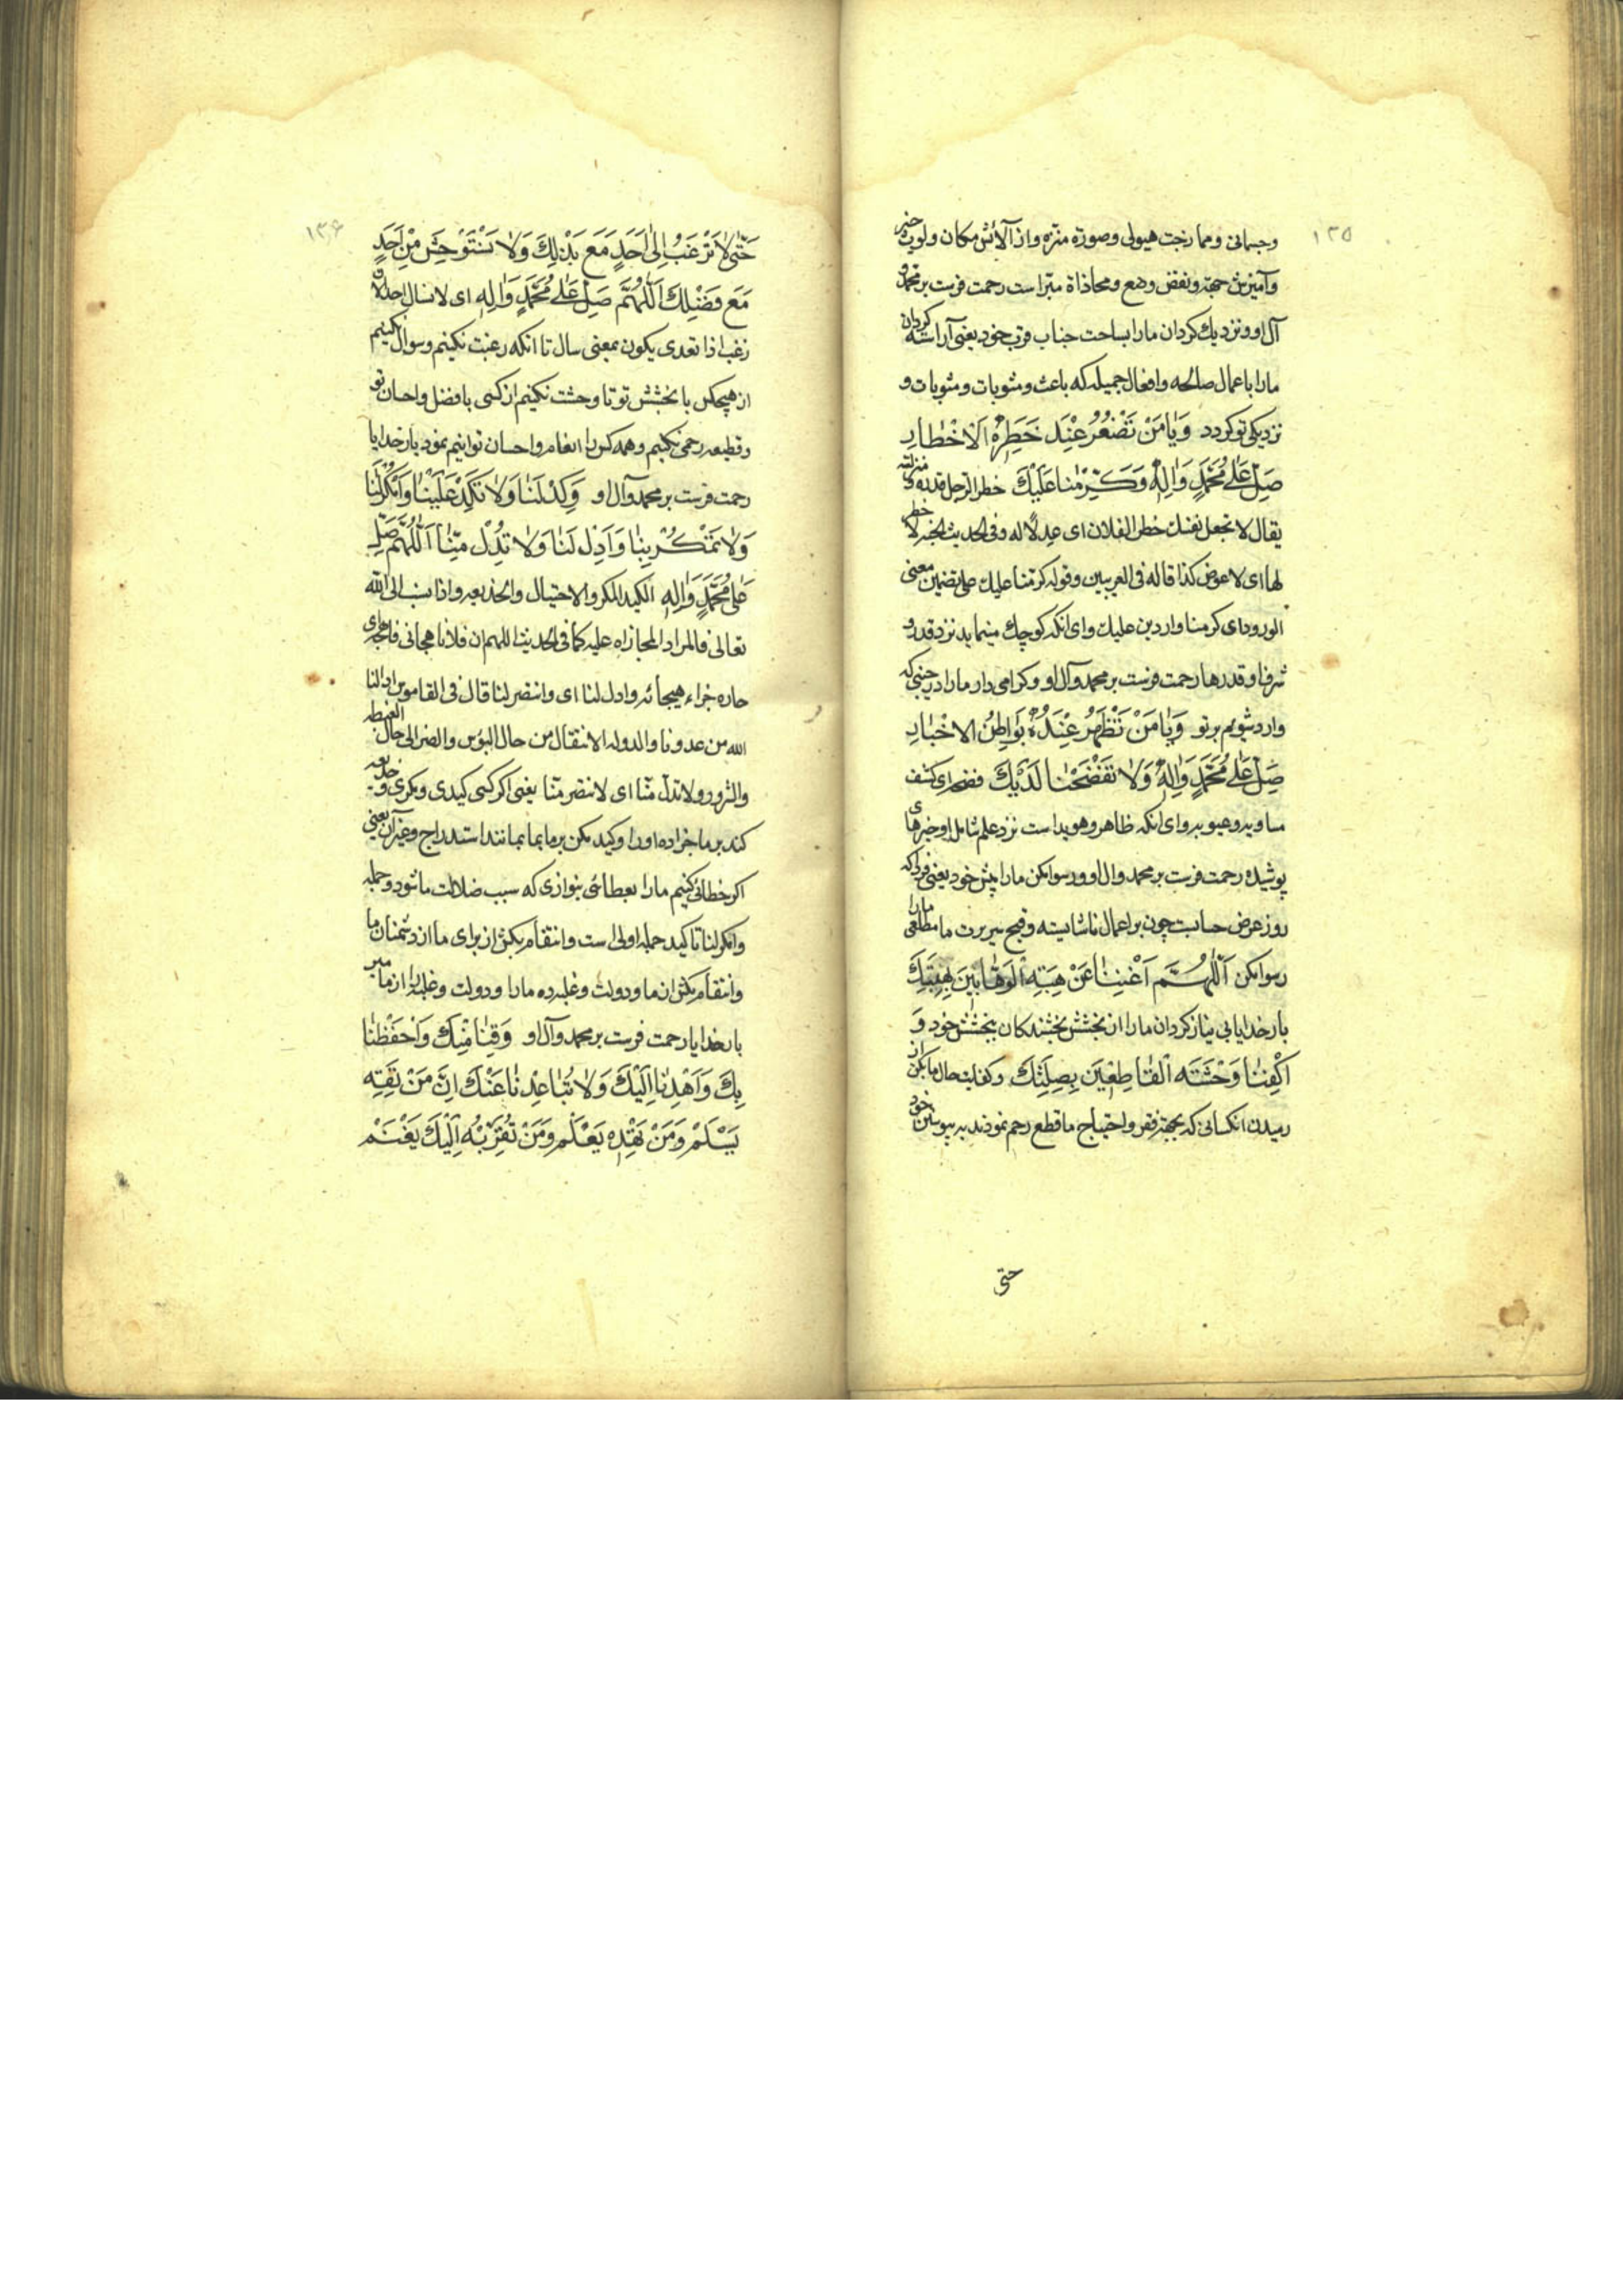 ۱۳۵
وجسمانی و ممازجت هیولی وصورة منزه واز آلایش مکان و لوث حیز
وآمیزش جهة ونقض وضع ومحاذاة مبراست رحمت فرست بر محمد و
آل او ونزدیك کردان مارا بساحت جناب قرب خود یعنی آراسته کردان
مارا باعمال صالحه وافعال جمیله که باعث ومثوبات و
نزدیکی تو کردد وَيَا مَنْ تَصْغُرُ عِنْدَ خَطَرِهِ الْاَخْطَارِ
صَلِّ عَلٰى مُحَمَّدٍ وَاٰلِهِ وَكَرِّمْنَا عَلَيْكَ خطر الرجل قدره و منزلته
يقال لا تجعل نفسك خطر الفلان ای عدلا له وفی الحدیث الجنة لا خطر
لها ای لا عوض کذا قاله فی الغریبین وقوله کرمنا علیك علی تضمین معنی
الورود ای کرمنا واردین علیك وای انکه کوچك مینماید نزد قدر و
شرف او قدرها رحمت فرست بر محمد وآل او وکرامی دار مارا در حینی که
وارد شویم بر تو وَيَا مَنْ تَظْهَرُ عِنْدَهُ بَوَاطِنُ الْاَخْبَارِ
صَلِّ عَلٰى مُحَمَّدٍ وَاٰلِهِ وَلَا تَفْضَحْنَا لَدَيْكَ فضحه ای کشف
مساویه وعیوبه وای انکه ظاهر وهویداست نزد علم شامل او خبرهای
پوشیده رحمت فرست بر محمد وال او ورسوا مکن مارا پیش خود یعنی فردا که
روز عرض حسابست چون بر اعمال ناشایسته وقبح سریرت ما مطلعی مارا
رسوا مکن اَللّٰهُمَّ اَغْنِنَا عَنْ هِبَةِ الْوَهَّابِينَ بِهِبَتِكَ
بار خدایا بی نیاز کردان مارا از بخشش بخشندکان ببخشش خود وَ
اكْفِنَا وَحْشَةَ الْقَاطِعِينَ بِصِلَتِكَ وکفایت حال ما بکن از
رمیدن انکسانی که بجهة فقر واحتیاج ما قطع رحم نمودند به پیوستن خود
حتی
۱۳۶
حَتّٰى لَا نَرْغَبَ اِلٰى اَحَدٍ مَعَ بَذْلِكَ وَلَا نَسْتَوْحِشَ مِنْ اَحَدٍ
مَعَ فَضْلِكَ اَللّٰهُمَّ صَلِّ عَلٰى مُحَمَّدٍ وَاٰلِهِ ای لا نسال احدا لان
رغب اذا تعدی یکون بمعنی سال تا انکه رغبت نکنیم وسوال نکنیم
از هیچکس با بخشش تو تا وحشت نکنیم از کسی با فضل واحسان تو
وقطیعه رحمی نکنیم وهمه کس را انعام واحسان توانیم نمود بار خدایا
رحمت فرست بر محمد وآل او وَكِدْ لَنَا وَلَا تَكِدْ عَلَيْنَا وَامْكُرْ لَنَا
وَلَا تَمْكُرْ بِنَا وَاَدِلْ لَنَا وَلَا تُدِلْ مِنَّا اَللّٰهُمَّ صَلِّ
عَلٰى مُحَمَّدٍ وَاٰلِهِ الکید المکر والاحتیال والخدیعه واذا نسب الی الله
تعالی فالمراد المجازاه علیه کما فی الحدیث اللهم ان فلانا هجانی فاهجه ای
جازه جزاء هجائه وادل لنا ای وانتصر لنا قال فی القاموس ادالنا
الله من عدونا والدوله الانتقال من حال البؤس والضر الی حال الغبطه
والسرور ولا تدل منا ای لا تنتصر منا یعنی اکر کسی کیدی ومکری وخدیعه
کند بر ما جزا ده اورا وکید مکن بر ما بمانند استدراج وغیر آن یعنی
اکر خطائی کنیم مارا بعطائی ننوازی که سبب ضلالت ما شود وجمله
وامکر لنا تاکید جمله اولی است وانتقام بکش از برای ما از دشمنان ما
وانتقام مکش از ما ودولت وغلبه ده مارا ودولت وغلبه را از ما مبر
بار خدایا رحمت فرست بر محمد وآل او وَقِنَا مِنْكَ وَاحْفَظْنَا
بِكَ وَاهْدِنَا اِلَيْكَ وَلَا تُبَاعِدْنَا عَنْكَ اِنَّ مَنْ تَقِهِ
يَسْلَمْ وَمَنْ تَهْدِهِ يَعْلَمْ وَمَنْ تُقَرِّبْهُ اِلَيْكَ يَغْنَمْ